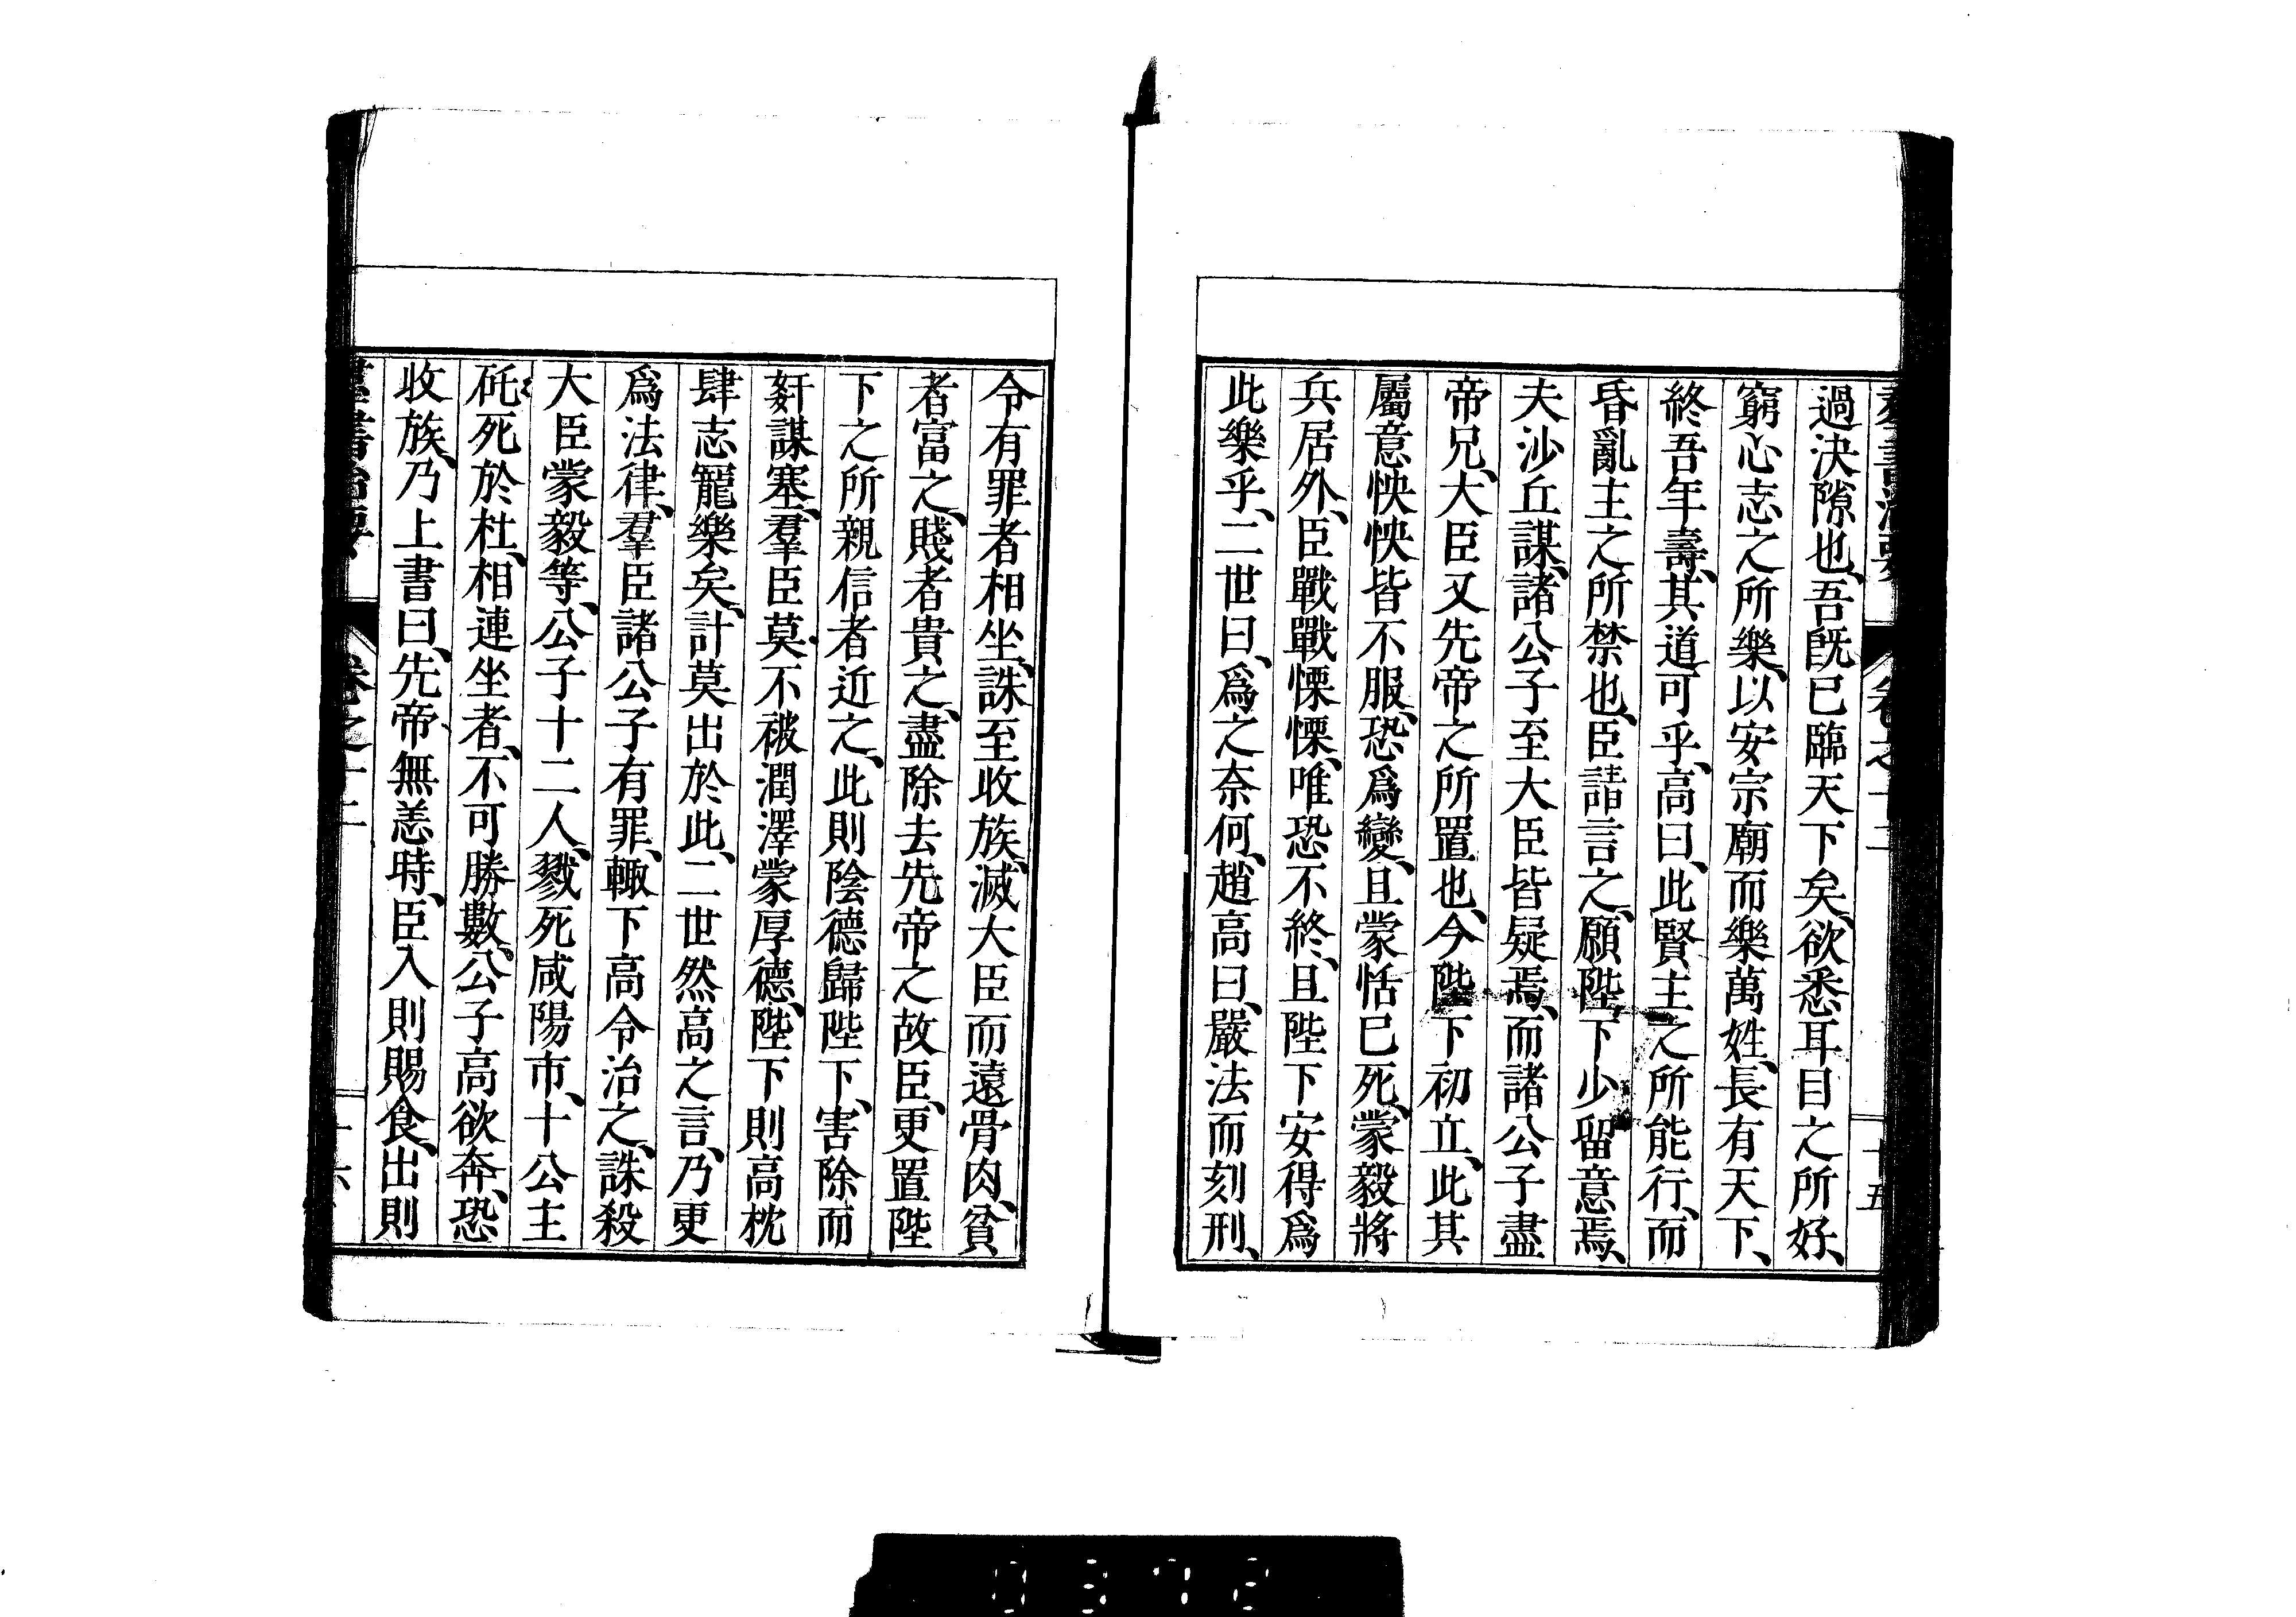 過決隙也、吾旣已臨天下矣、欲悉耳目之所好、
窮心志之所樂、以安宗廟而樂萬姓、長有天下、
終吾年壽、其道可乎、高曰、此賢主之所能行、而
昏亂主之所禁也、臣請言之、願陛下少留意焉、
夫沙丘謀、諸公子至大臣皆疑焉、而諸公子盡
帝兄、大臣又先帝之所置也、今陛下初立、此其
屬意怏怏皆不服、恐爲變、且蒙恬已死、蒙毅將
兵居外、臣戰戰慄慄、唯恐不終、且陛下安得爲
此樂乎、二世曰、爲之奈何、趙高曰、嚴法而刻刑、
令有罪者相坐、誅至收族、滅大臣而遠骨肉、貧
者富之、賤者貴之、盡除去先帝之故臣、更置陛
下之所親信者近之、此則陰德歸陛下、害除而
姧謀塞、羣臣莫不被潤澤蒙厚德、陛下則高枕
肆志寵樂矣、計莫出於此、二世然高之言、乃更
爲法律、羣臣諸公子有罪、輙下高令治之、誅殺
大臣蒙毅等、公子十二人、戮死咸陽市、十公主
矺死於杜、相連坐者、不可勝數、公子高欲奔、恐
收族、乃上書曰、先帝無恙時、臣入則賜食、出則
卷之十二